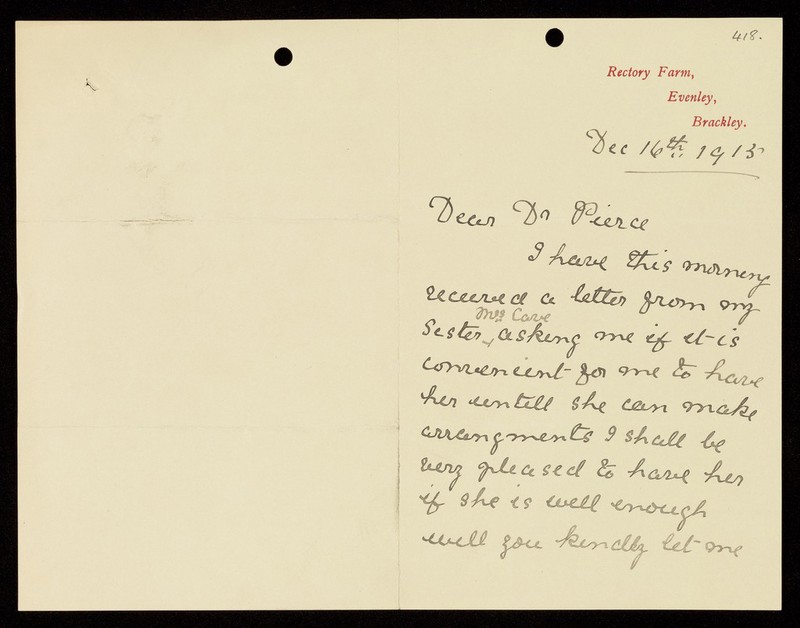 418.
Rectory Farm,
Evenley,
Brackley.
Dec 16th 1915
Dear Dr Pierce
I have this morning
received a letter from my
Mrs Cave
Sister, asking me if it is
convenient for me to have
her untill she can make
arrangments I shall be
very pleased to have her
if she is well enough
will you kindly let me